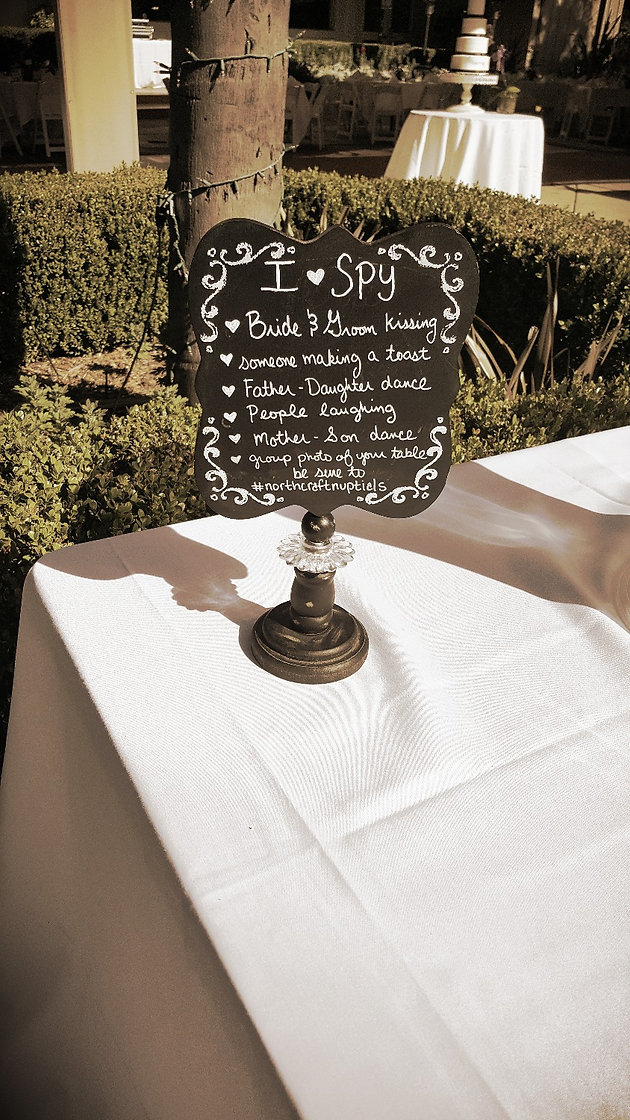 I ♥ Spy
♥ Bride & Groom kissing
♥ someone making a toast
♥ Father-Daughter dance
♥ People laughing
♥ Mother-Son dance
♥ group photo of your table
be sure to
#northcraftnuptiels